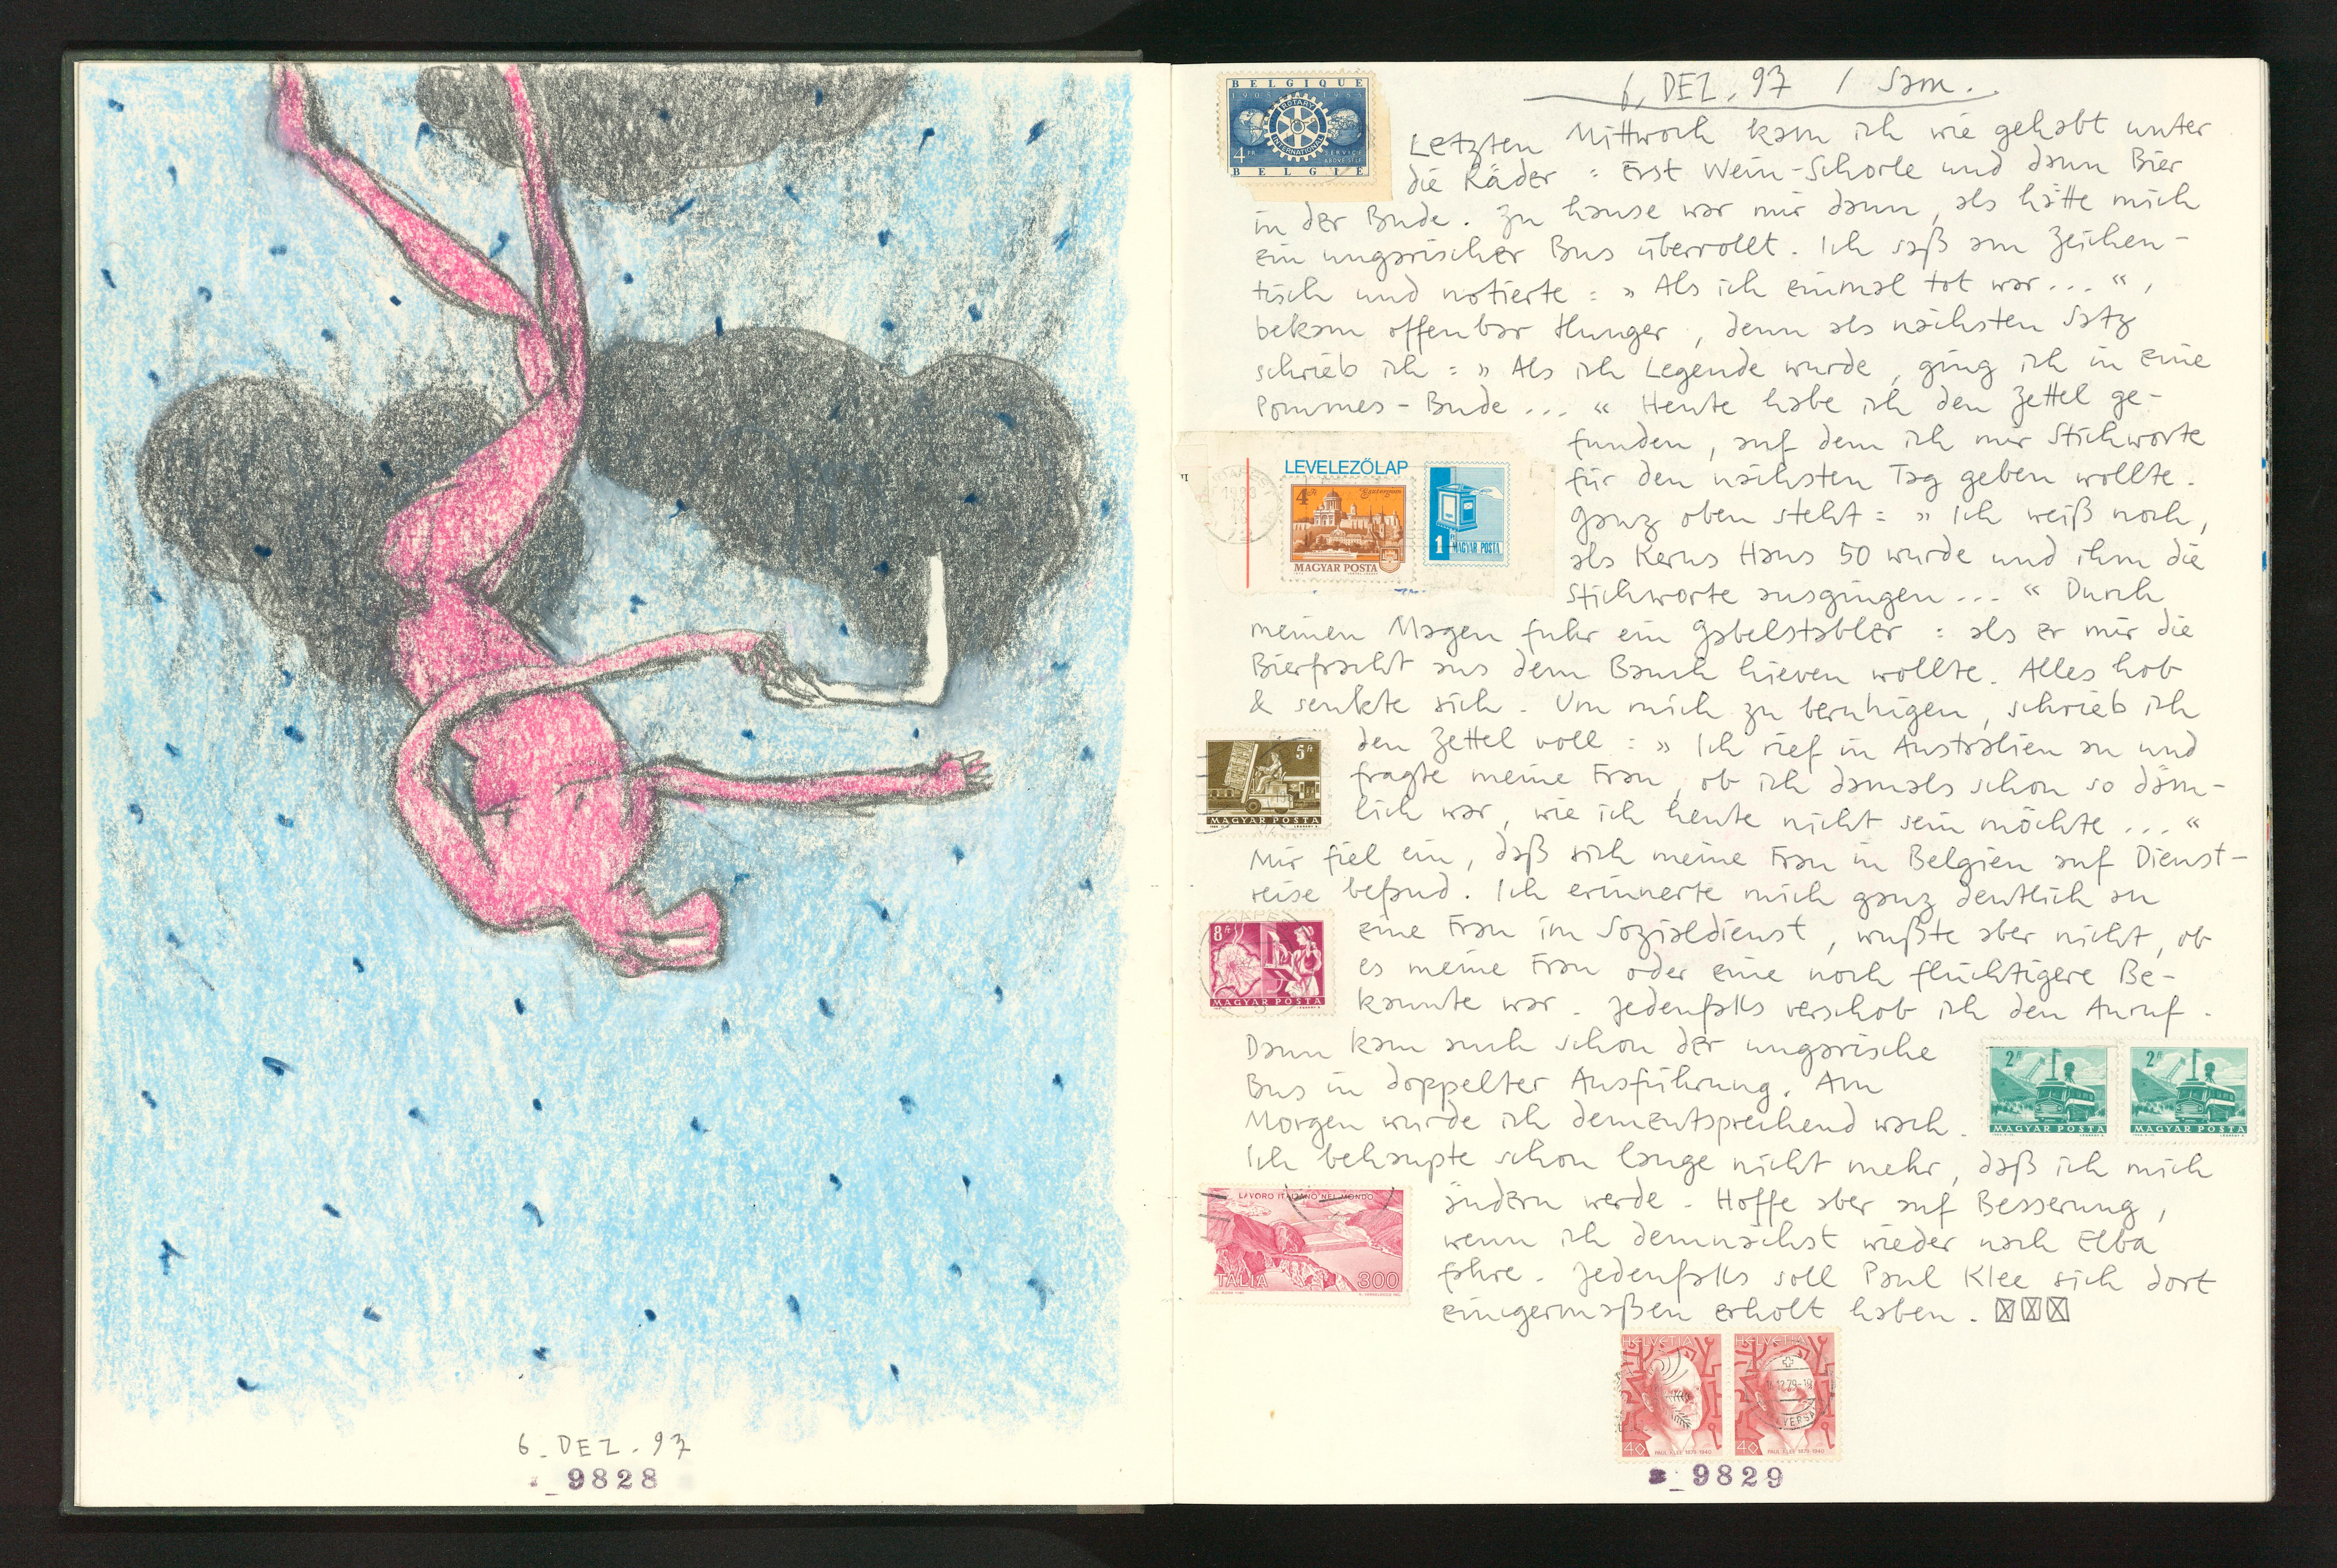 6. DEZ. 97
9828
6. DEZ. 97 / Sam.
BELGIQUE
1905 1955
ROTARY
INTERNATIONAL
4 FR
SERVICE
ABOVE SELF
BELGIE
Letzten Mittwoch kam ich wie gehabt unter
die Räder : Erst Wein-Schorle und dann Bier
in der Bude. Zu hause war mir dann, als hätte mich
ein ungarischer Bus überrollt. Ich saß am Zeichen-
tisch und notierte : » Als ich einmal tot war... «,
bekam offenbar Hunger, denn als nächsten Satz
schrieb ich : » Als ich Legende wurde, ging ich in eine
Pommes-Bude... « Heute habe ich den Zettel ge-
funden, auf dem ich mir Stichworte
für den nächsten Tag geben wollte.
Ganz oben steht : » Ich weiß noch,
als Kerns Hans 50 wurde und ihm die
Stichworte ausgingen... « Durch
LEVELEZŐLAP
4 Ft
Esztergom
MAGYAR POSTA
1 Ft
MAGYAR POSTA
meinen Magen fuhr ein Gabelstabler : als er mir die
Bierfracht aus dem Bauch hieven wollte. Alles hob
& senkte sich. Um mich zu beruhigen, schrieb ich
den Zettel voll : » Ich rief in Australien an und
fragte meine Frau, ob ich damals schon so däm-
lich war, wie ich heute nicht sein möchte... «
5 Ft
MAGYAR POSTA
Mir fiel ein, daß sich meine Frau in Belgien auf Dienst-
reise befand. Ich erinnerte mich ganz deutlich an
eine Frau im Sozialdienst, wußte aber nicht, ob
es meine Frau oder eine noch flüchtigere Be-
kannte war. Jedenfalls verschob ich den Anruf.
8 Ft
MAGYAR POSTA
Dann kam auch schon der ungarische
Bus in doppelter Ausführung. Am
Morgen wurde ich dementsprechend wach.
2 Ft
MAGYAR POSTA
2 Ft
MAGYAR POSTA
Ich behaupte schon lange nicht mehr, daß ich mich
ändern werde. Hoffe aber auf Besserung,
wenn ich demnächst wieder nach Elba
fahre. Jedenfalls soll Paul Klee sich dort
einigermaßen erholt haben.
LAVORO ITALIANO NEL MONDO
ITALIA 300
HELVETIA
40 PAUL KLEE 1879-1940
HELVETIA
40 PAUL KLEE 1879-1940
9829